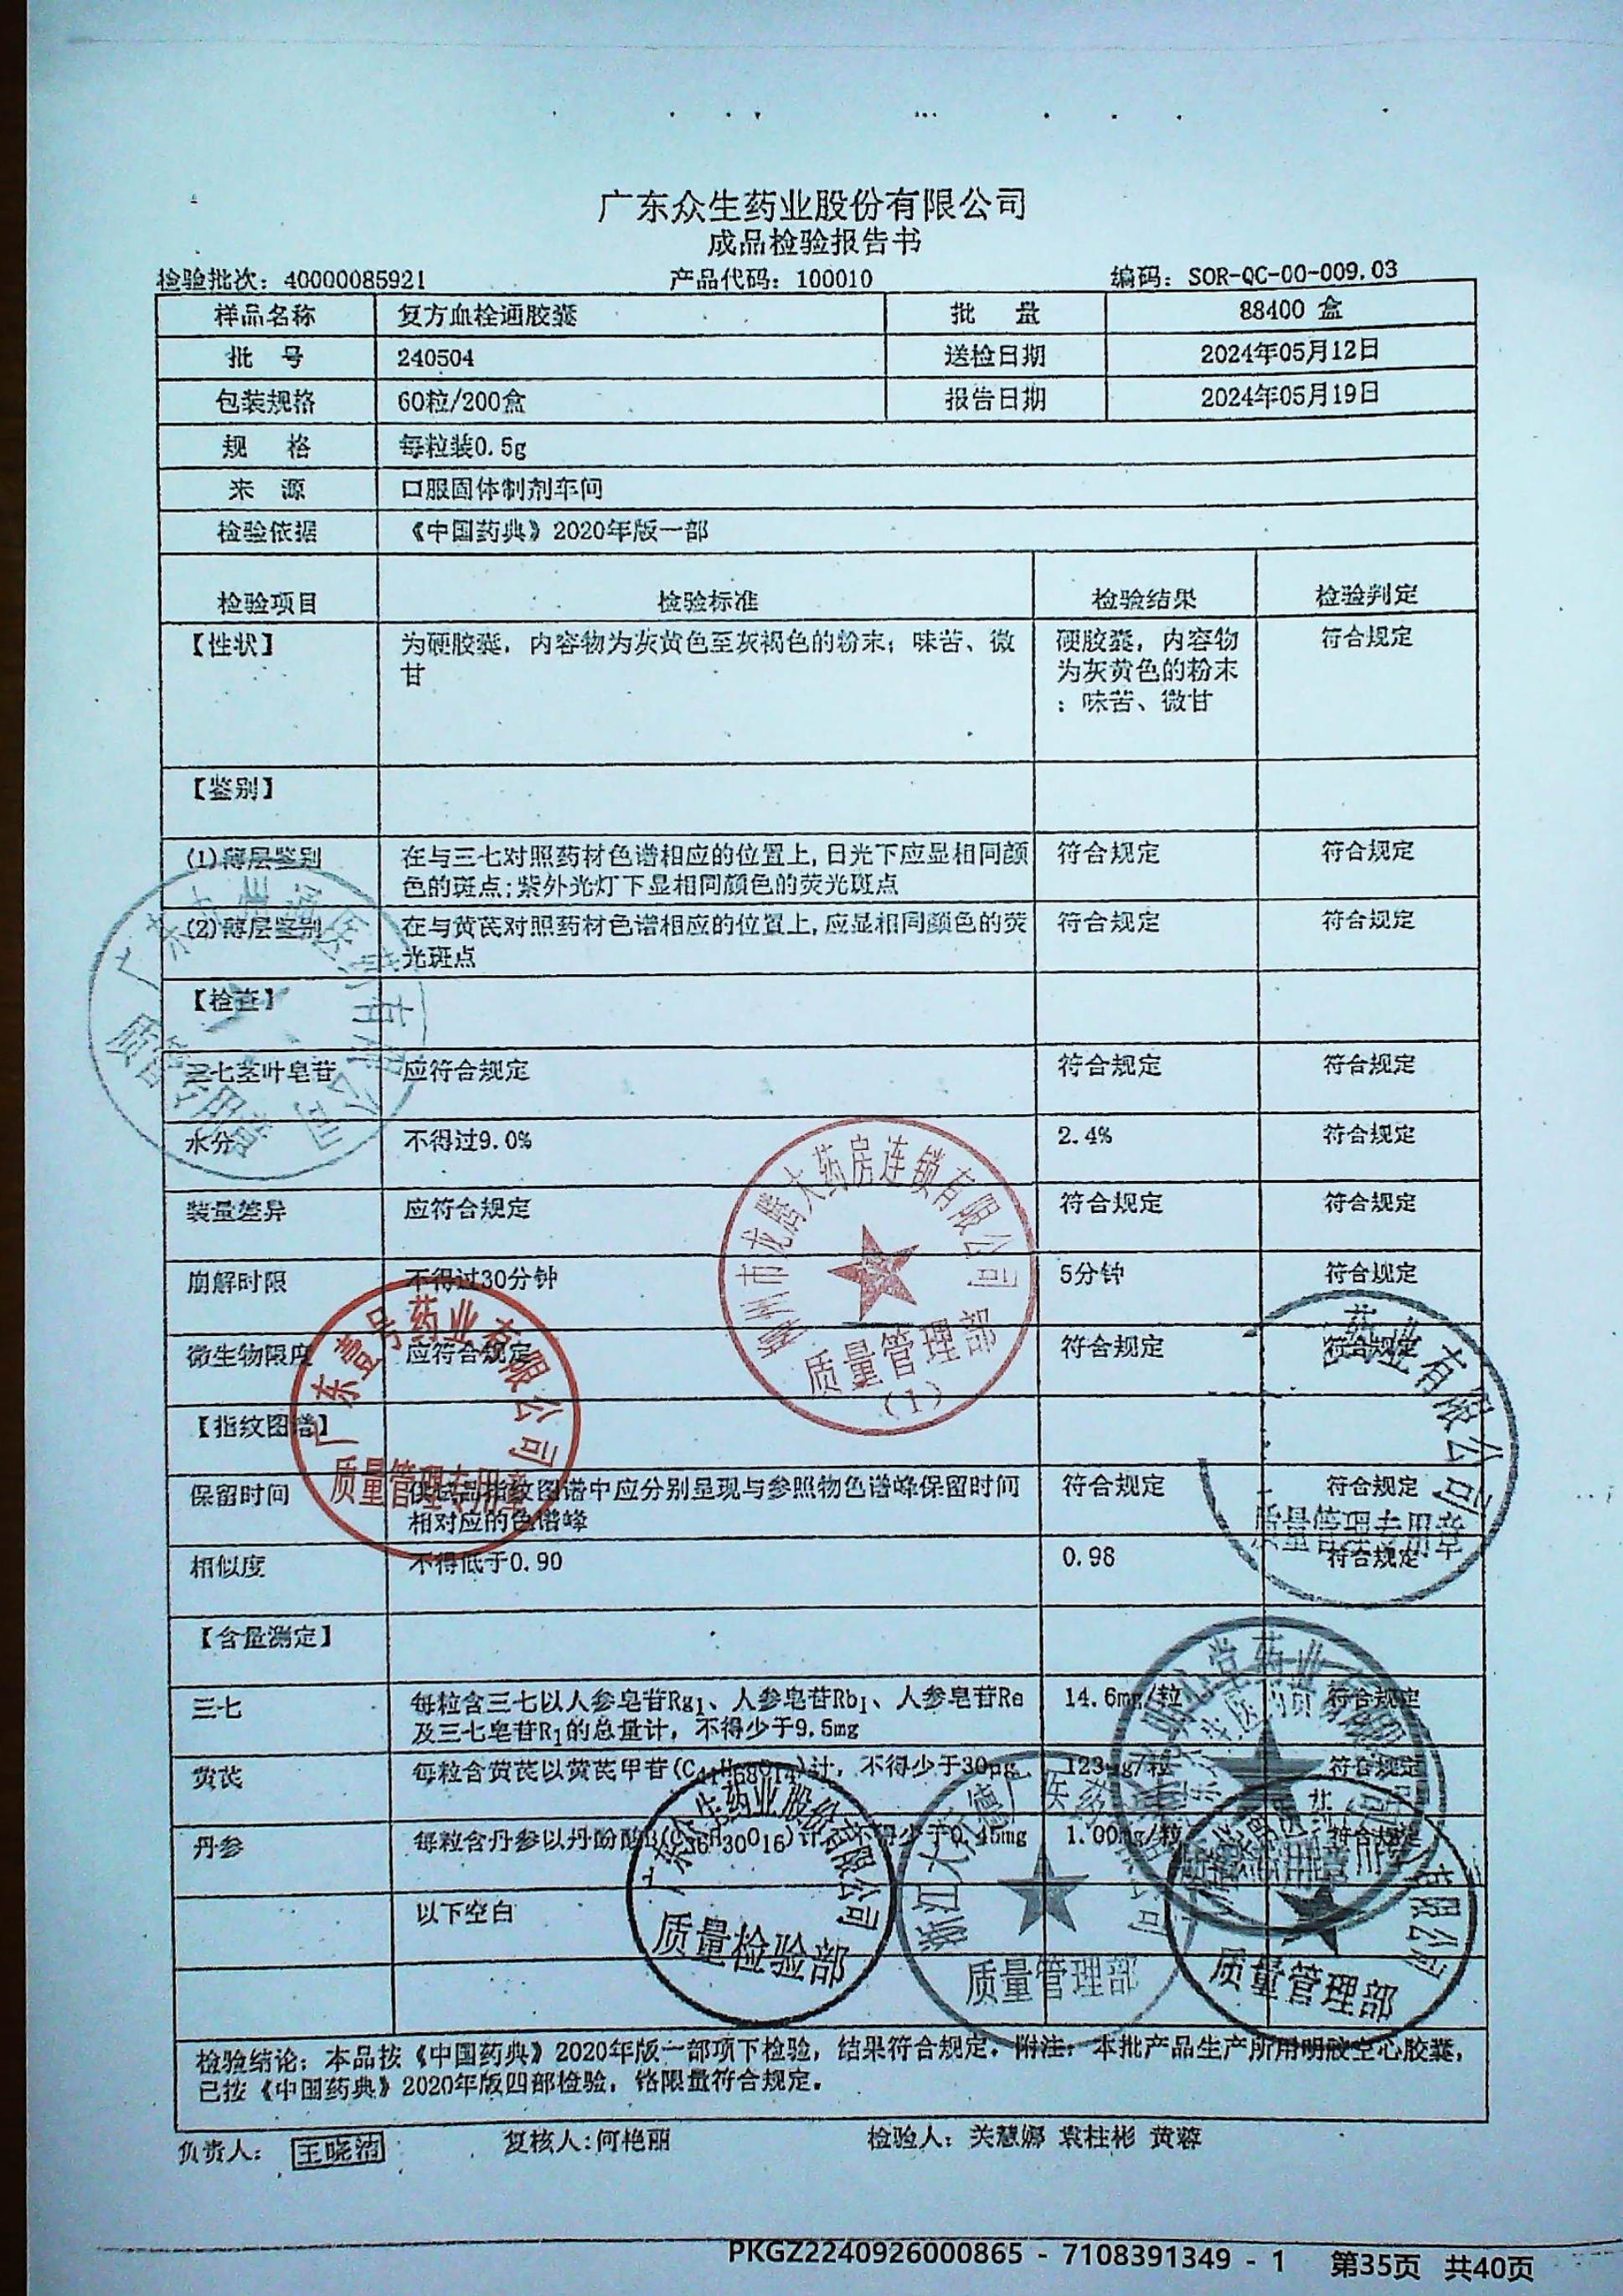 广东众生药业股份有限公司
成品检验报告书
检验批次：40000085921 产品代码：100010 编码：SOR-QC-00-009.03
样品名称 复方血栓通胶囊 批 量 88400 盒
批 号 240504 送检日期 2024年05月12日
包装规格 60粒/200盒 报告日期 2024年05月19日
规 格 每粒装0.5g
来 源 口服固体制剂车间
检验依据 《中国药典》2020年版一部
检验项目 检验标准 检验结果 检验判定
【性状】 为硬胶囊，内容物为灰黄色至灰褐色的粉末；味苦、微 硬胶囊，内容物 符合规定
甘 为灰黄色的粉末
；味苦、微甘
【鉴别】
(1)薄层鉴别 在与三七对照药材色谱相应的位置上,日光下应显相同颜 符合规定 符合规定
色的斑点;紫外光灯下显相同颜色的荧光斑点
(2)薄层鉴别 在与黄芪对照药材色谱相应的位置上,应显相同颜色的荧 符合规定 符合规定
光斑点
【检查】
三七茎叶皂苷 应符合规定 符合规定 符合规定
水分 不得过9.0% 2.4% 符合规定
装量差异 应符合规定 符合规定 符合规定
崩解时限 不得过30分钟 5分钟 符合规定
微生物限度 应符合规定 符合规定 符合规定
【指纹图谱】
保留时间 供试品指纹图谱中应分别呈现与参照物色谱峰保留时间 符合规定 符合规定
相对应的色谱峰
相似度 不得低于0.90 0.98 符合规定
【含量测定】
三七 每粒含三七以人参皂苷Rg1、人参皂苷Rb1、人参皂苷Re 14.6mg/粒 符合规定
及三七皂苷R1的总量计，不得少于9.5mg
黄芪 每粒含黄芪以黄芪甲苷(C41H68O14)计，不得少于30μg 123μg/粒 符合规定
丹参 每粒含丹参以丹酚酸B(C36H30O16)计 得少于0.45mg 1.00mg/粒 符合规定
以下空白
检验结论：本品按《中国药典》2020年版一部项下检验，结果符合规定。附注：本批产品生产所用明胶空心胶囊，
已按《中国药典》2020年版四部检验，铬限量符合规定。
负责人： 王晓清 复核人:何艳丽 检验人：关慧娜 袁柱彬 黄蓉
柳州市龙腾大药房连锁有限公司
质量管理部
（1）
广东壹号药业有限公司
质量管理专用章
药业有限公司
质量管理专用章
广东众生药业股份有限公司
质量检验部
质量管理部
质量管理部
PKGZ2240926000865 - 7108391349 - 1 第35页 共40页